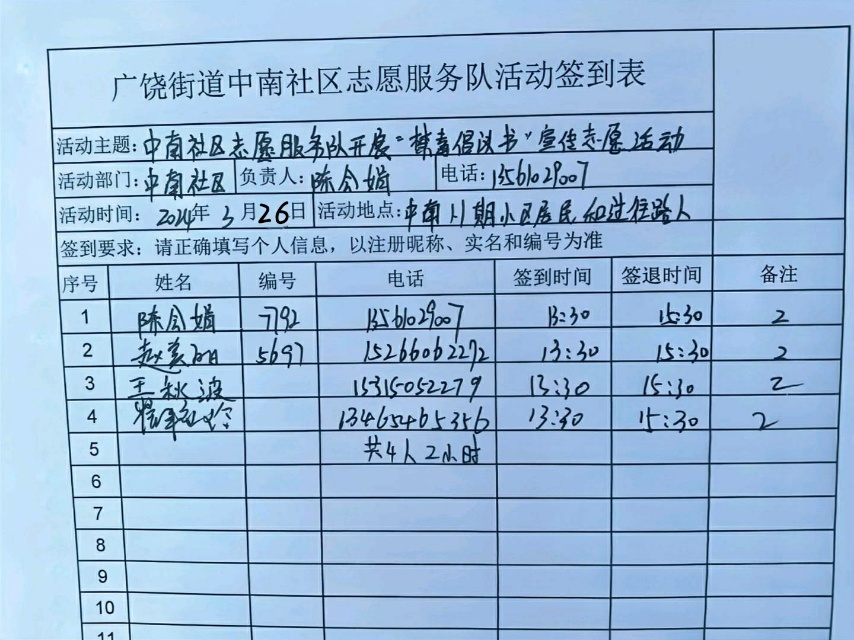 广饶街道中南社区志愿服务队活动签到表
活动主题：中南社区志愿服务队开展“禁毒倡议书”宣传志愿活动
活动部门：中南社区 负责人：陈会娟 电话：13561029007
活动时间：2024年3月26日 活动地点：中南小期小区居民和过往路人
签到要求：请正确填写个人信息，以注册昵称、实名和编号为准
序号 姓名 编号 电话 签到时间 签退时间 备注
1 陈会娟 7792 13561029007 13:30 15:30 2
2 赵美丽 5697 15266062272 13:30 15:30 2
3 王秋波 15315052279 13:30 15:30 2
4 13465465356 13:30 15:30 2
5 共4人2小时
6
7
8
9
10
11